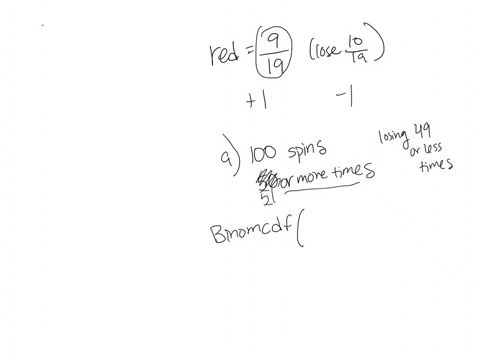 red = 9/19 (lose 10/19)
+1 -1
a) 100 spins
51 or more times
losing 49
or less
times
Binomcdf(